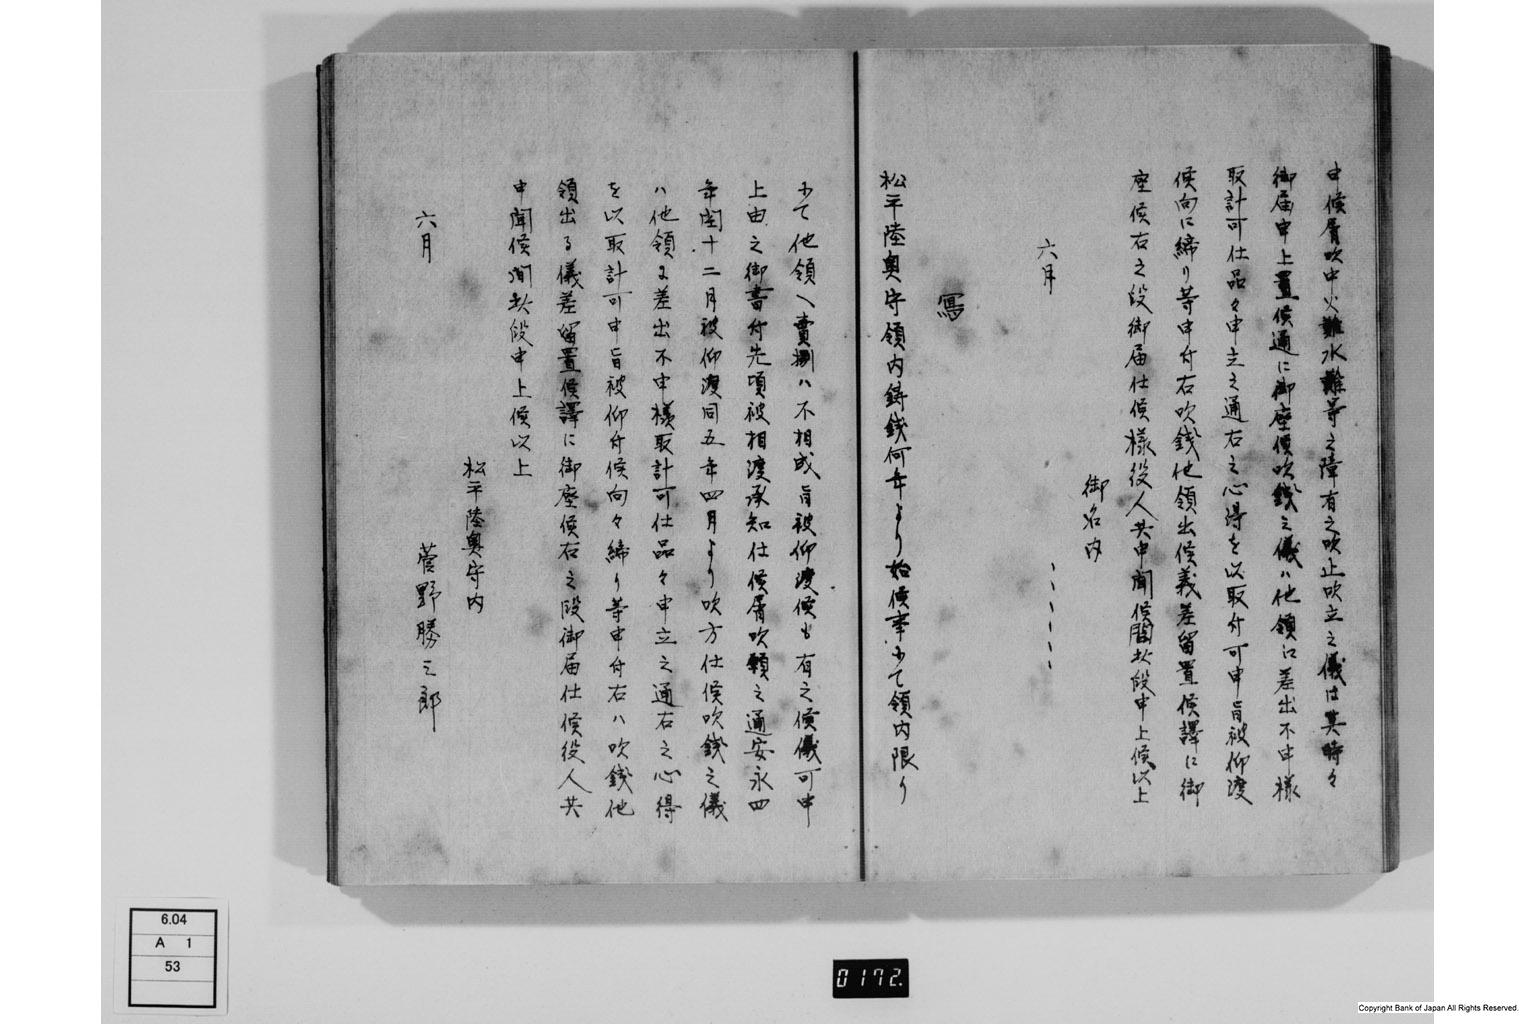 申候屑吹申火難水難等之障有之吹止吹立之儀は其時々
御届申上置候通に御座候吹銭之儀ハ他領江差出不申様
取計可仕品々申立之通右之心得を以取斗可申旨被仰渡
候向に締り等申付右吹銭他領出候義差留置候譯に御
座候右之段御届仕候様役人共申聞候間此段申上候以上
御名内
六月
寫
松平陸奥守領内鋳銭何年より始候事ニて領内限り
ニて他領へ賣捌ハ不相成旨被仰渡候も有之候儀可申
上由之御書付先頃被相渡承知仕候屑吹願之通安永四
年閏十二月被仰渡同五年四月より吹方仕候吹銭之儀
ハ他領江差出不申様取計可仕品々申立之通右之心得
を以取計可申旨被仰付候向々締り等申付右ハ吹銭他
領出る儀差留置候譯に御座候右之段御届仕候役人共
申聞候間此段申上候以上
松平陸奥守内
六月 菅野勝三郎
6.04
A 1
53
0172.
Copyright Bank of Japan All Rights Reserved.